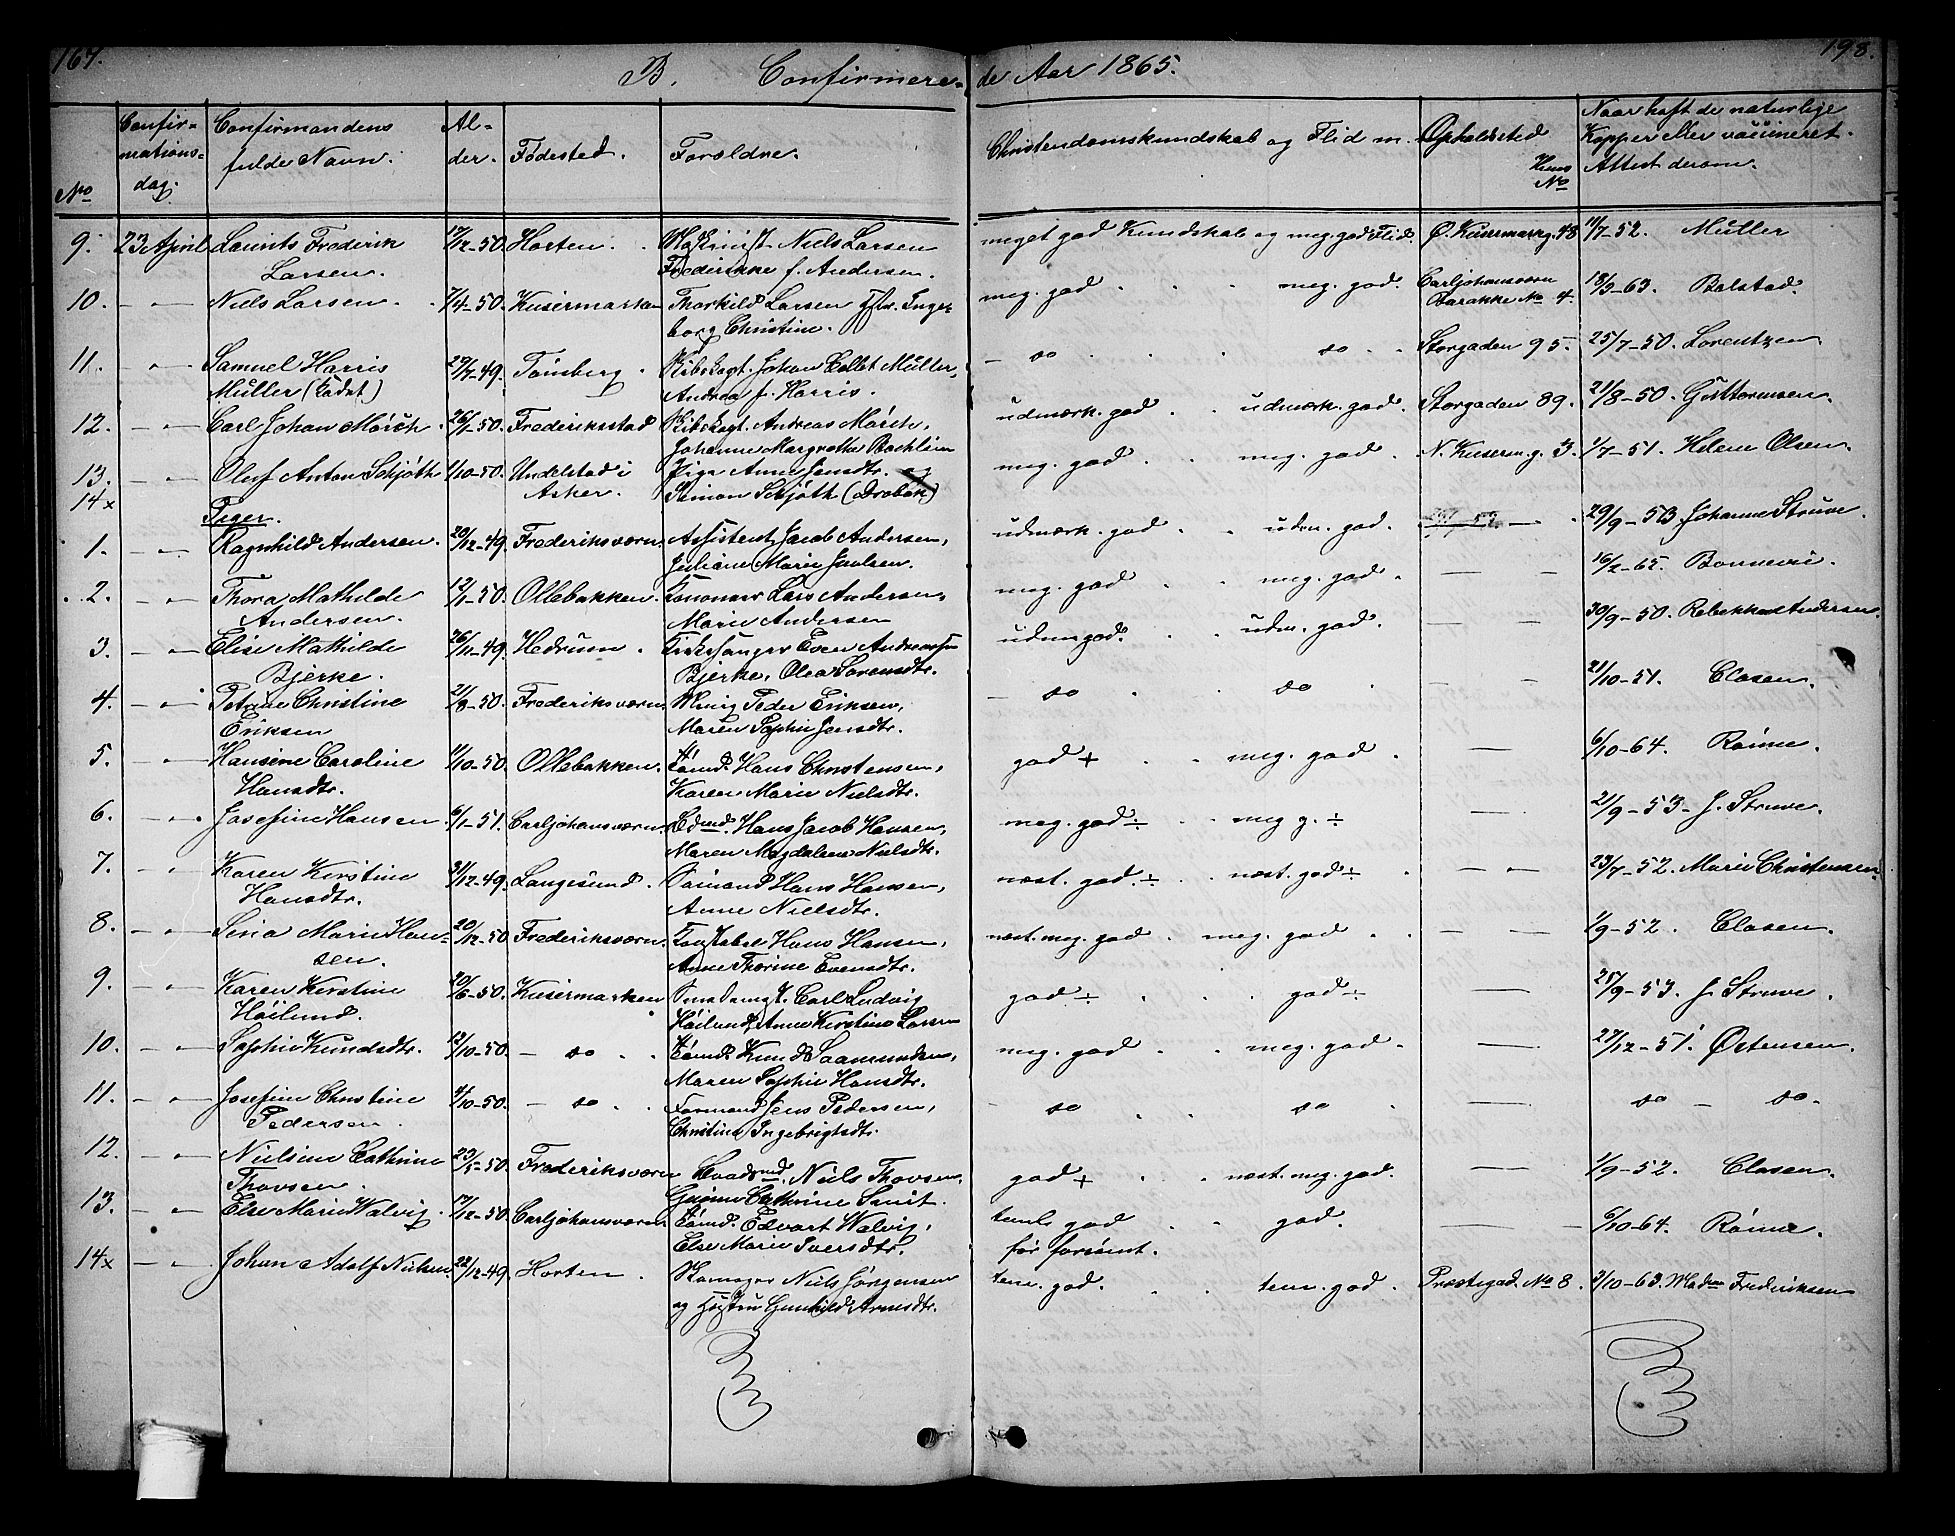 167. 198.
B. Confirmere- de Aar 1865.
No Confirmationsdag. Confirmandens fulde Navn. Alder. Fødested. Forældre. Christendomskundskab og Flid m. Opholdssted Huus No Naar haft de naturlige Kopper eller vaccineret. Attest derom.
9. 23 April Laurits Frederik 17/12-50. Horten. Maskinist. Niels Larsen meget god Kundskab og meg. god Flid. Ø. Keisermarkg. 48 11/7-52. Müller
Larsen. Frederikke f. Andersen.
10. — " — Niels Larsen. 7/4-50. Keisermarken Thorkild Larsen Inge- meg. god . . . meg. god. Carljohansværn 18/9-63. Balstad.
borg Christine. Barakke No 4.
11. — " — Samuel Harris 29/7-49. Tønsberg. Skibskapt. Johan Collet Müller, — do . . . do . . Storgaden 95. 25/7-50. Lorentzen.
Müller (Kadet) Andrea f. Harris.
12. — " — Carl Johan Mørch. 26/1-50. Frederiksstad Skibskapt. Andreas Mørch, udmærk. god . . udmærk. god. Storgaden 89. 21/8-50. Guttormsen.
Johanne Margrethe
13. — " — Oluf Anton Schjøth 1/10-50. Undelstad i Pige Anne Jensdtr. og meg. god . . meg. god. N. Keiserm. g. 3. 1/7-51. Helene Olsen.
14x Asker. Simon Schjøth (Drøbak)
Piger.
1. — " — Ragnhild Andersen. 20/12-49. Frederiksværn. Assistent Jacob Andersen, udmærk. god . . udm. god. — 29/9-53. Johanne Struve.
Juliane Marie Paulsen.
2. — " — Thora Mathilde 12/1-50. Ollebakken. Kanoneer Lars Andersen, meg. god . . meg. god. — — 16/2-65. Bonnevie.
Andersen. Marie Andersen
3. — " — Elise Mathilde 26/11-49. Hedrum. Kirkesanger Even Andreassen udm god. . . udm. god. — — 30/9-50. Rebekka Andersen
Bjerke. Bjerke, Olea Sørensdtr.
4. — " — Petrine Christine 21/8-50. Frederiksværn. Peder Eriksen, — do . . do . — — 21/10-51. Clasen.
Eriksen Maren Sophie Jensdtr.
5. — " — Hansine Caroline 11/10-50. Ollebakken. Tømd. Hans Christensen, god + . . meg. god . — 6/10-64. Röime.
Hansdtr. Karen Marie Nielsdtr.
6. — " — Josefine Hansen. 6/1-51. Carljohansværn. Hans Jacob Hansen, meg. god ÷ . . meg g. ÷ — 21/9-53- J. Struve.
Maren Magdalene Nielsdtr.
7. — " — Karen Kirstine 31/12-49. Langesund. Sømand Hans Hansen, næst. god. ÷ . . næst. god ÷ . — " — 23/7-52. Marie Christensen.
Hansdtr. Anne Nielsdtr.
8. — " — Sina Marie Han- 20/12-50. Frederiksværn. Konstabel Hans Hansen, næst. meg. god . meg. god . . — — 1/9-52. Clasen.
sen. Anne Thorine Evensdtr.
9. — " — Karen Kirstine 20/6-50. Keisermarken Carl Ludvig god ÷ . . . god ÷ — 25/9-53. J. Struve.
Høilund. Høilund, Anne Kirstine Larsen
10. — " — Sophie Knudsdtr. 12/10-50. — do . . Tømd. Knud Saamundsen, meg. god . . meg. god . — 27/12-51. Østensen.
Maren Sophie Hansdtr.
11. — " — Josefine Christine 4/10-50. — do . . Formand Jens Pedersen, — do . . do . — do — do.
Pedersen. Christine Ingebrigtsdtr.
12. — " — Nielsine Cathrine 23/5-50. Frederiksværn Niels Thovsen, god + . . næst. meg. god. — 1/9-52. Clasen.
Thovsen. Cathrine
13. — " — Else Marie Walvig. 17/12-50. Carljohansværn. Tømd. Edvart Walvig, teml. god . . god. — 6/10-64. Röime.
Else Marie Iversdtr. før forsømt.
14x — " — Johan Adolf Nielsen. 22/12-49. Horten. Skomager Niels Jørgensen tem. god. . . tem. god. Præstegad. No 8. 2/10-63. Madm Frederiksen
og Hustru Gunhild Arnesdtr.